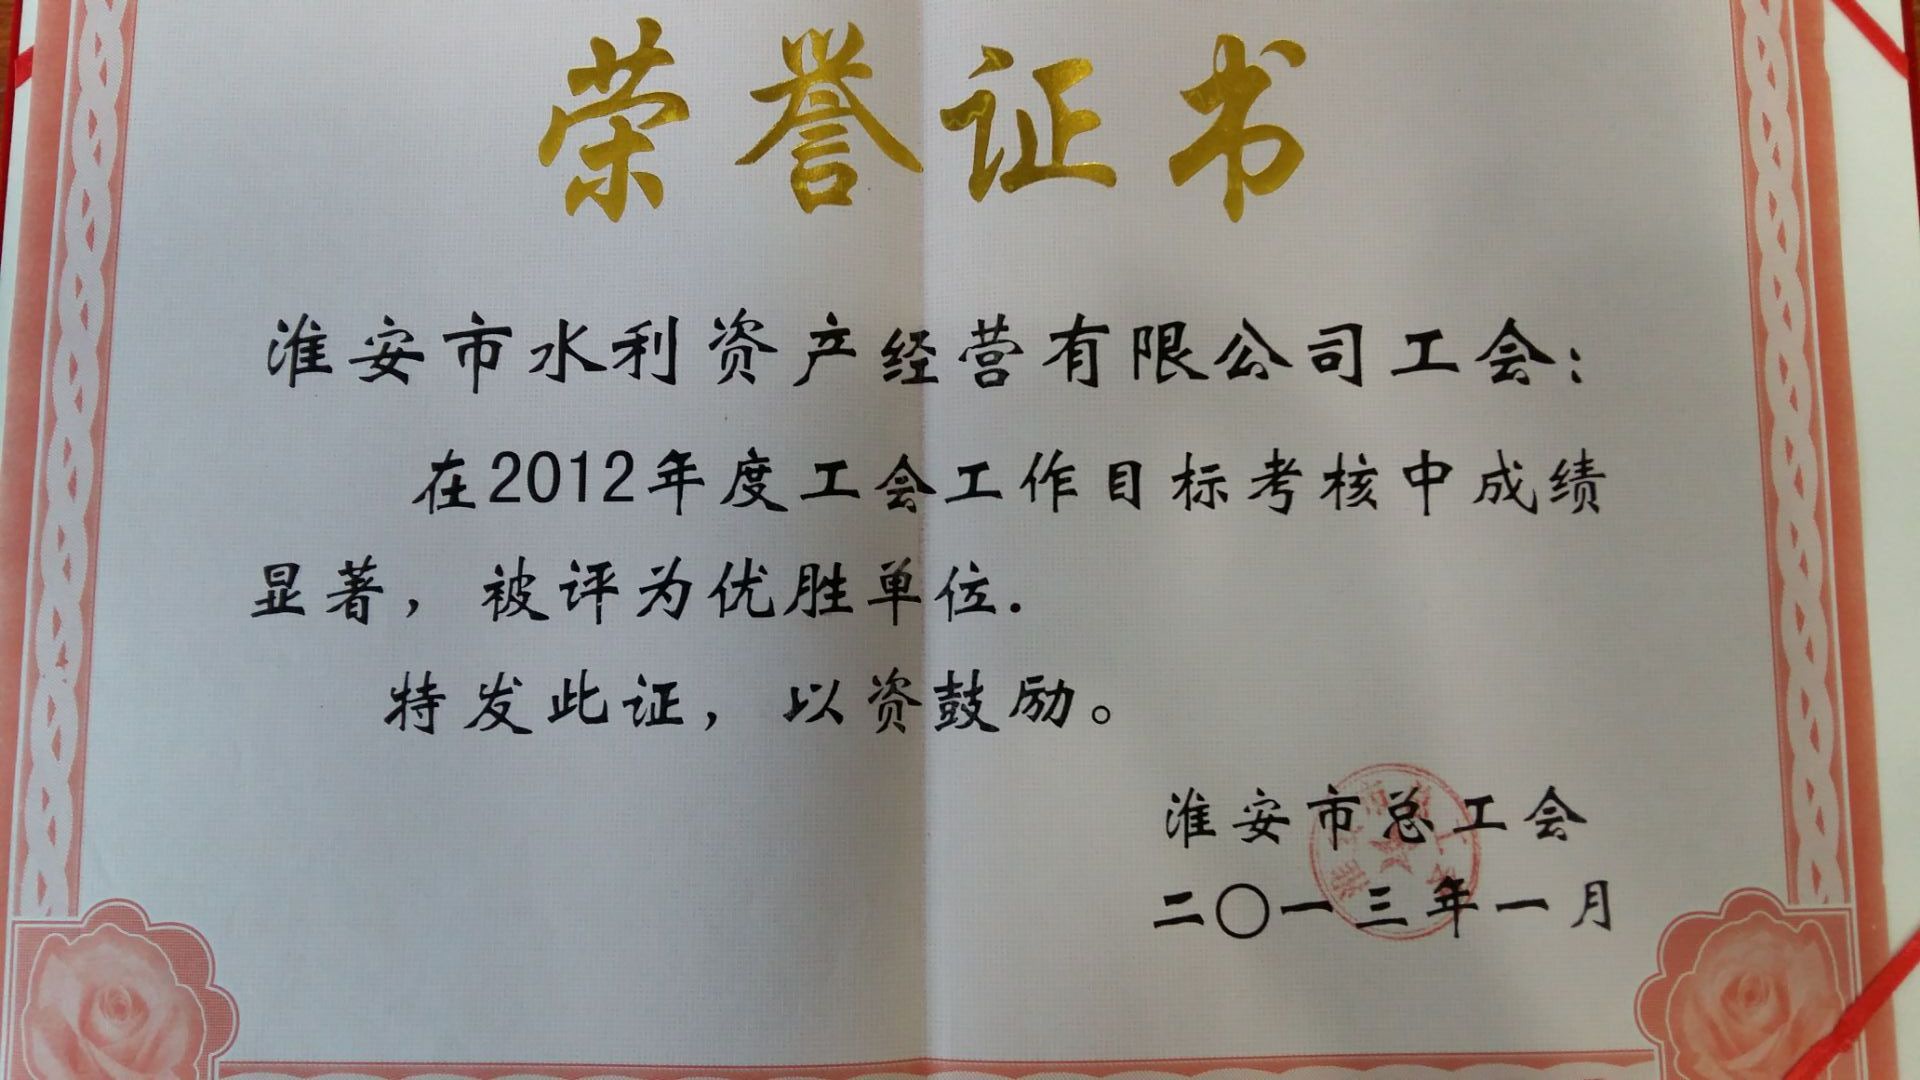 荣誉证书
淮安市水利资产经营有限公司工会:
在2012年度工会工作目标考核中成绩
显著，被评为优胜单位.
特发此证，以资鼓励。
淮安市总工会
二〇一三年一月